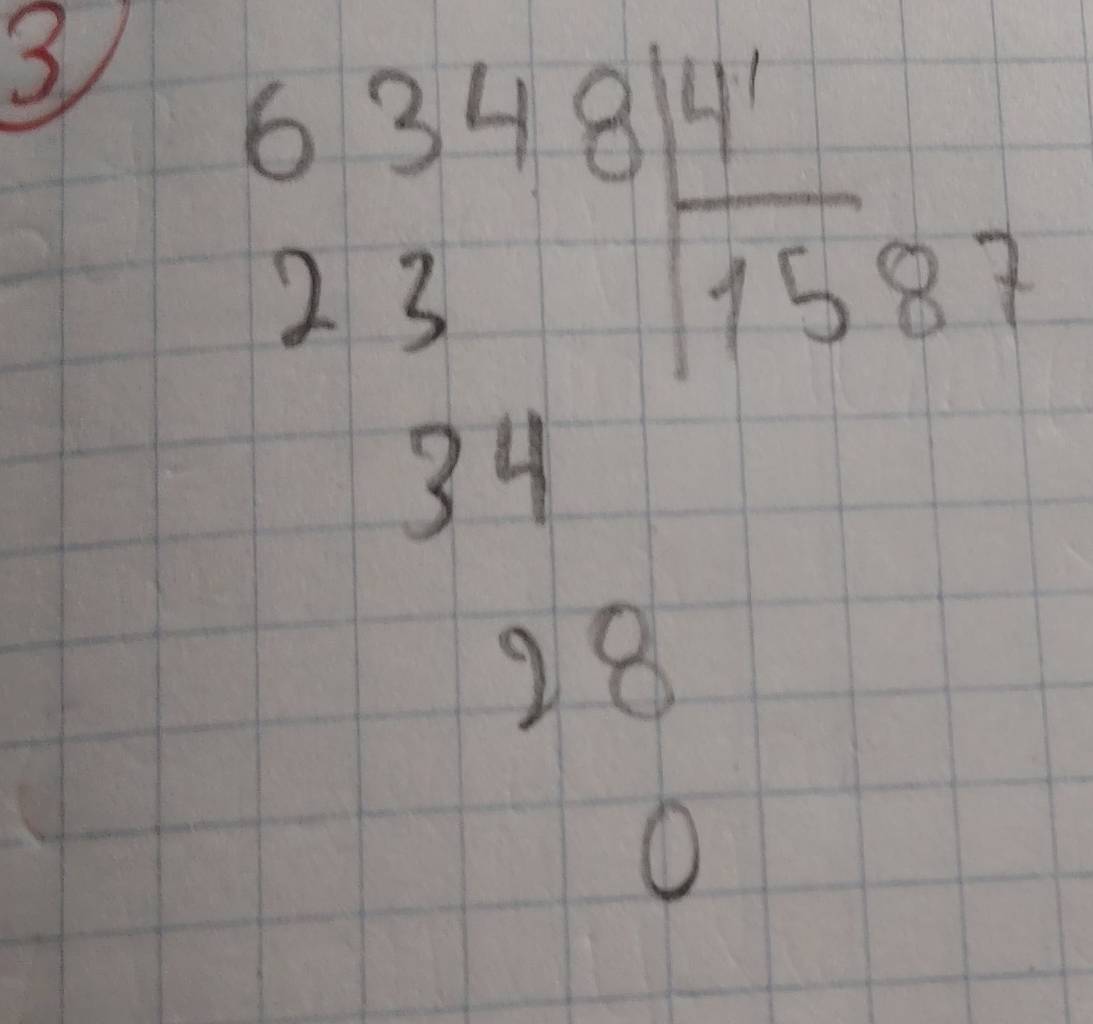 3
6348 4
23 1587
34
28
0